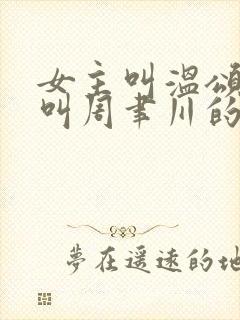 女主叫溫頌
叫周聿川的
夢在遥遠的地